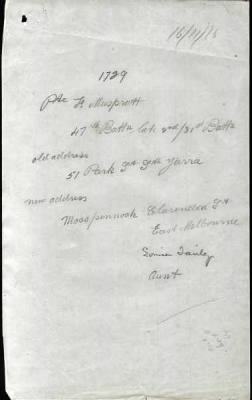 16/11/16
1729
Pte F Musprott
47th Battn late 2nd/31st Battn
old address
51 Park St Sth Yarra
new address
Mosspennoch Clarendon St
East Melbourne
Aunt